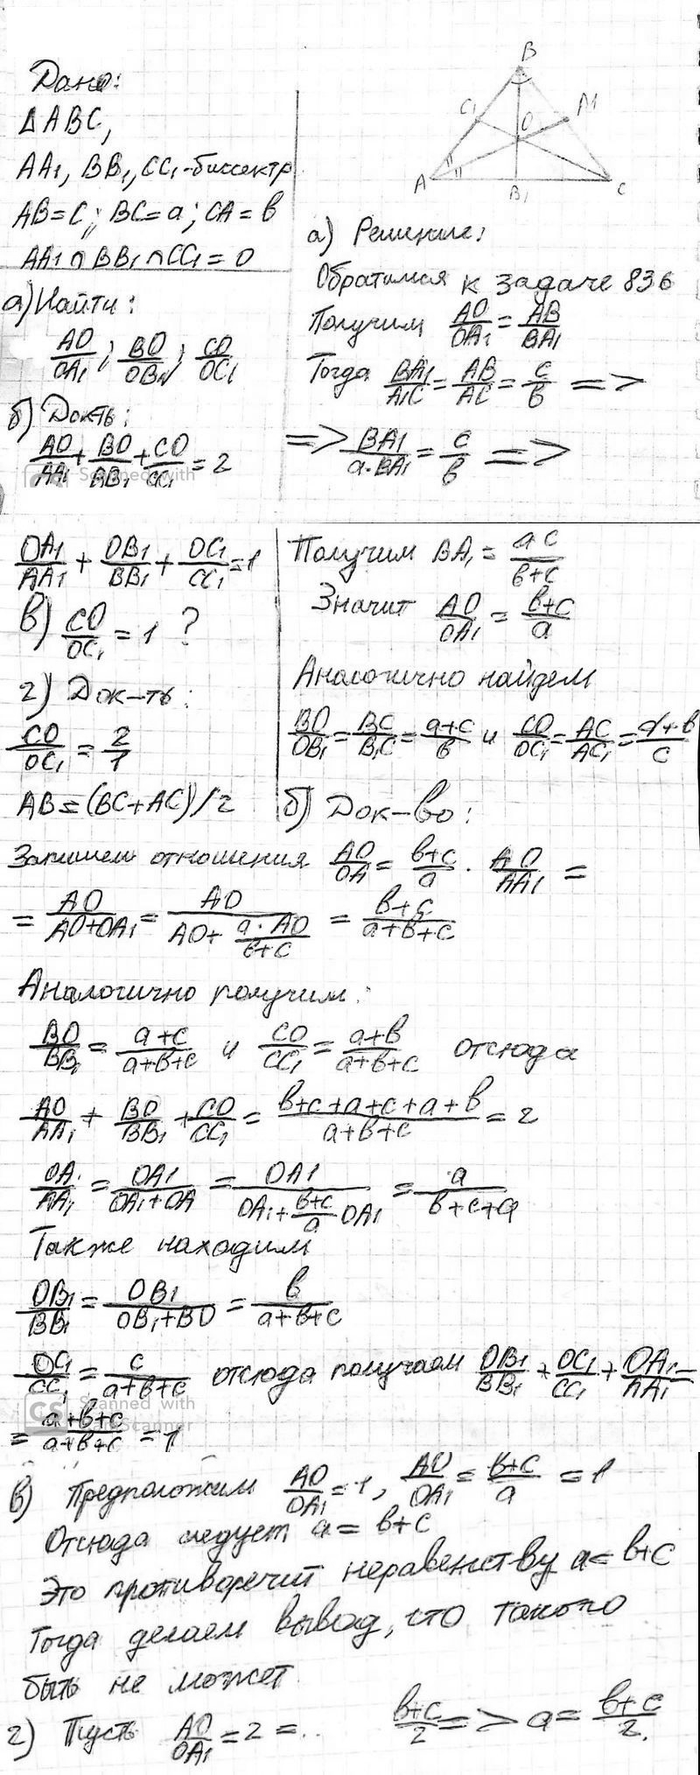 Дано:
ΔABC,
AA₁, BB₁, CC₁-биссектр
AB=C; BC=a; CA=в
AA₁∩BB₁∩CC₁=O
а) Найти:
AO/OA₁; BO/OB₁; CO/OC₁
б) Док-ть:
AO/AA₁+BO/BB₁+CO/CC₁=2
Scanned with
B
C₁ O A1
A B₁ C
а) Решение:
Обратимся к задаче 836
Получим AO/OA₁=AB/BA₁
Тогда BA₁/A₁C=AB/AC=c/в =>
=> BA₁/a-BA₁=c/в =>
OA₁/AA₁+OB₁/BB₁+OC₁/CC₁=1
в) CO/OC₁=1 ?
г) Док-ть:
CO/OC₁=2/1
AB=(BC+AC)/2
Получим BA₁=ac/в+c
Значит AO/OA₁=в+c/a
Аналогично найдем
BO/OB₁=BC/B₁C=a+c/в и CO/OC₁=AC/AC₁=a+в/c
б) Док-во:
Запишем отношения AO/OA=в+c/a. AO/AA₁=
=AO/AO+OA₁=AO/AO+a·AO/в+c=в+c/a+в+c
Аналогично получим:
BO/BB₁=a+c/a+в+c и CO/CC₁=a+в/a+в+c отсюда
AO/AA₁+BO/BB₁+CO/CC₁=в+c+a+c+a+в/a+в+c=2
OA₁/AA₁=OA1/OA₁+OA=OA1/OA₁+в+c/a OA₁=a/в+c+a
Также находим
OB₁/BB₁=OB₁/OB₁+BO=в/a+в+c
OC₁/CC₁=c/a+в+c отсюда получаем OB₁/BB₁+OC₁/CC₁+OA₁/AA₁=
CS Scanned with
CamScanner
=a+в+c/a+в+c=1
в) Предположим AO/OA₁=1, AO/OA₁=в+c/a=1
Отсюда следует a=в+c
Это противоречит неравенству a<в+c
Тогда делаем вывод, что такого
быть не может
г) Пусть AO/OA₁=2=.. в+c/2=>a=в+c/2.